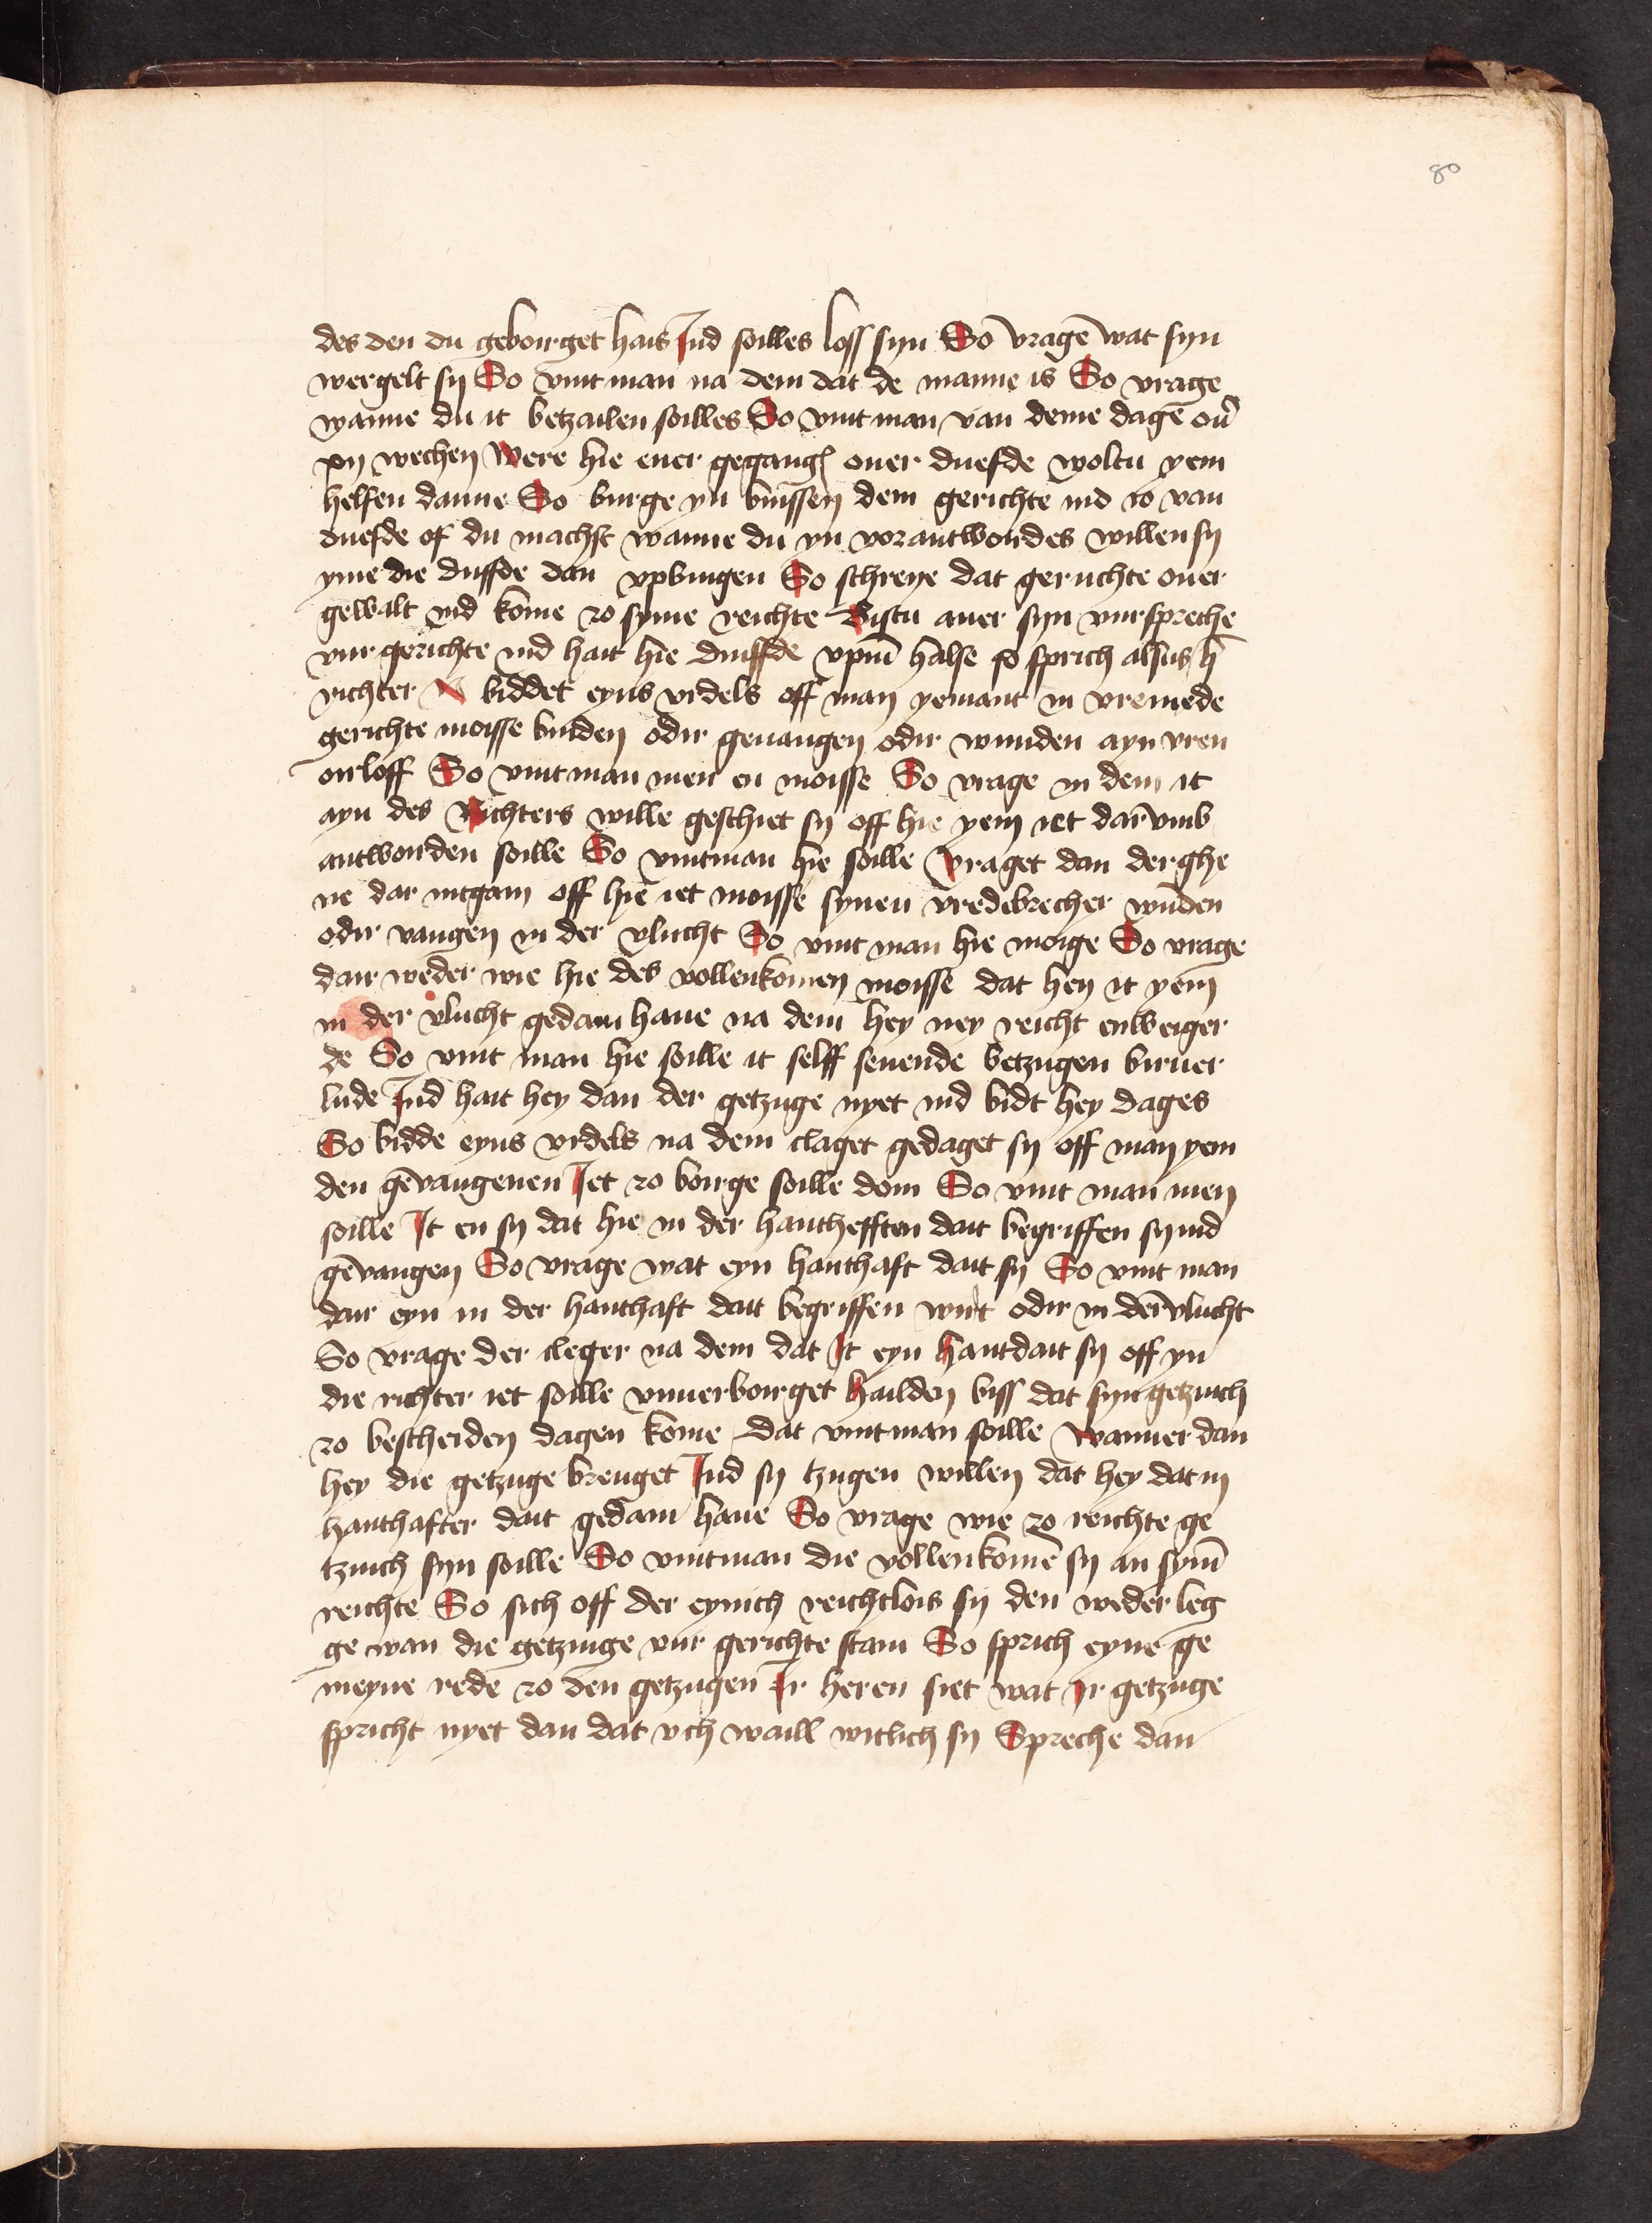 80
des den du gebourget hais Jnd soilles loss syn So vragē wat syn
wergelt sy So vint man na dem dat de manne is So vrage
wanne du it betzailen soilles So vint man van deme dagē ou͛
xij wechen Were hie euer gegangē ouer duefde woltu yem
helfen danne So burge yn buissen dem gerichte ind zo van
duefde of du machst wanne du yn vorantwordes willen sy
yme die duffde dan vpbringen So schreye dat geruchte ouer
gewalt ind kome zo syme reichte Bistu auer syn vurspreche
vur gerichte ind hait hie duiffde vpm̄ halse so sprich alsus h̄
richter N biddet eyns vrdels off man yemant in vremede
gerichte moisse binden odir geuangen odir wunden ayn vren
oirloff So vint man men en moisse So vrage in dem it
ayn des Richters wille geschiet sy off hie yem iet dar vmb
antworden soille So vintman hie soille Vraget dan der ghe
ne dar intgain off hie iet moisse synen vredebrecher wūden
odir vangen in der vlucht So vint man hie moige So vrage
dair weder wie hie des vollenkomen moisse dat hey it yem
in der vlucht gedain haue na dem hey ney reicht enweiger
de So vint man hie soille it selff seuende betzugen biruer
lude Jnd hait hey dan der getzuge nyet ind bidt hey dages
So bidde eyns vrdels na dem claget gedaget sy off man yem
den gevangenen Jet zo bourge soille doin So vint man men
soille Jt en sy dat hie in der hanthefften dait begriffen sy ind
gevangen So vrage wat eyn hanthaft dait sy So vint man
dair eyn in der hanthaft dait begriffen wirt odir in der vlucht
So vrage der cleger na dem dat Jt eyn hantdait sy off yn
die richter iet soille vnuerbourget hailden biss dat syn getzuich
zo bescheiden dagen kome dat vintman soille Wanner dan
hey die getzuge brenget Jnd sy tzugen willen dat hey dat in
hanthafter dait gedain haue So vrage wie zo reichte ge
tzuich syn soille So vintman die vollenkomē sy an sym̄
reichte So sich off der eynich reichtlois sy den weder leg
ge wan die getzuige vur gerichte stain So sprich eyne ge
meyne rede zo den getzugen Jr heren siet wat Jr getzuge
spricht nyet dan dat vch waill witlich sy Spreche dan